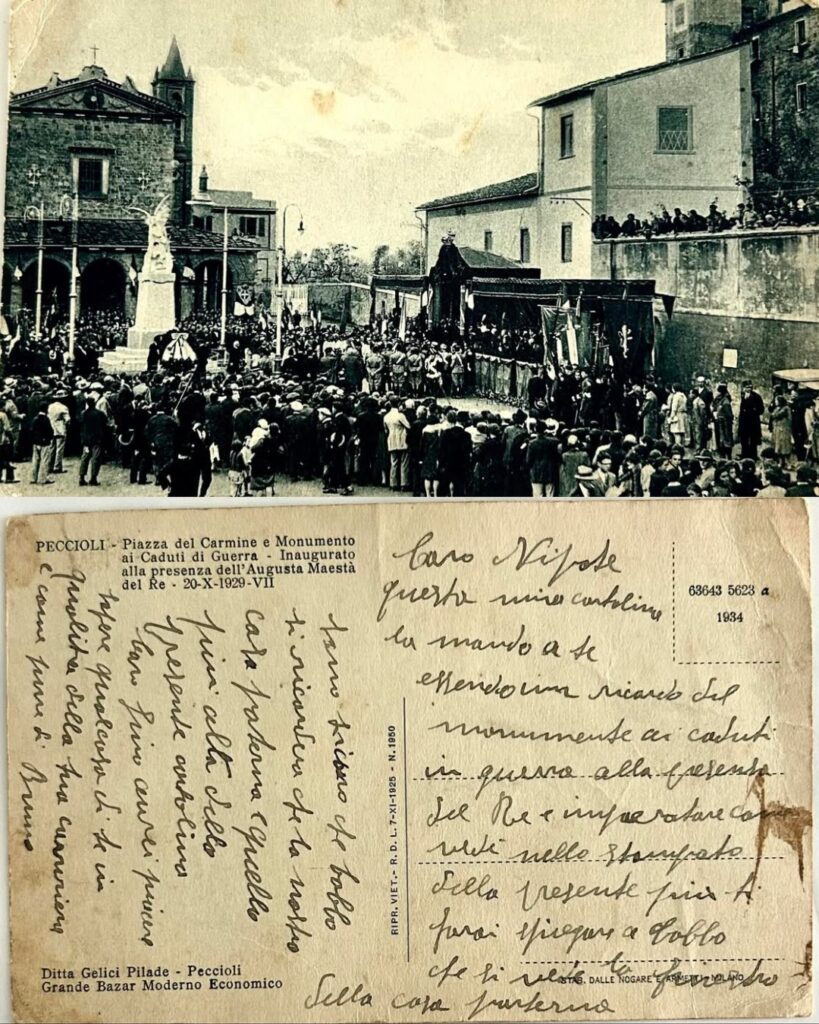 PECCIOLI - Piazza del Carmine e Monumento
ai Caduti di Guerra - Inaugurato
alla presenza dell'Augusta Maestà
del Re - 20-X-1929-VII
Caro Nipote
questa mia cartolina
la mando a te
essendo un ricordo del
monumente ai caduti
in guerra alla presenza
del Re e imperatore come
vedi nello stampato
della presente più ti
farai spiegare a babbo
che si vede la finestra
della casa paterna
sono sicuro che babbo
si ricorderà che la nostra
casa paterna è quella
più alta della
presente cartolina
Caro Gino avrei piacere
sapere qualcosa di te in
qualità della tua carriera
e come pure di Bruno
63643 5623 a
1934
RIPR. VIET. - R. D. L. 7-XI-1925 - N. 1950
Ditta Gelici Pilade - Peccioli
Grande Bazar Moderno Economico
STAB. DALLE NOGARE E ARMETTI - MILANO